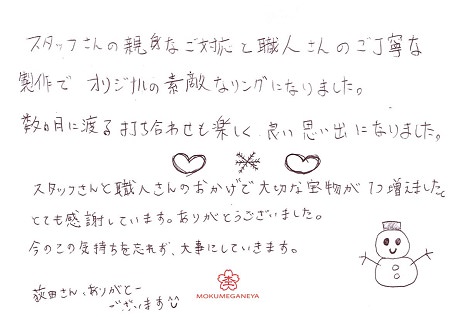 スタッフさんの親身なご対応と職人さんのご丁寧な
製作で オリジナルの素敵なリングになりました。
数ヵ月に渡る打ち合わせも楽しく、良い思い出になりました。
スタッフさんと職人さんのおかげで大切な宝物が1つ増えました。
とても感謝しています。ありがとうございました。
今のこの気持ちを忘れず、大事にしていきます。
荻田さん、ありがとー
ございます
MOKUMEGANEYA